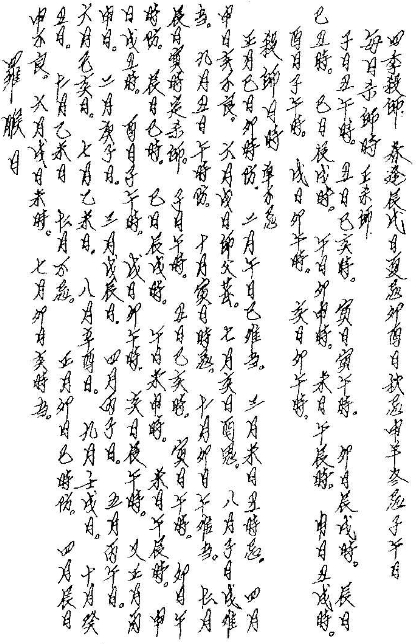 四季殺師 春逢辰戌日夏忌卯酉日秋忌申午冬忌子午日
每日杀師時 壬杀師
子日丑午時。 丑日巳亥時。 寅日寅午時。 卯日辰戌時。 辰日
巳丑時。 巳日辰戌時。 午日卯申時。 未日午辰時 申日丑戌時。
酉日子午時。 戌日卯午時。 亥日卯午時。
殺師日時 不忌
正月巳日卯時防。 二月午日巳难當。 三月未日丑時忌。 四月
申日亥不良。 六月戌日卯。 七月亥日酉。 八月子日戌难
當。 九月丑日午時防。 十月寅日時忌。 十一月卯日午难當。 十二月
辰日寅時莫杀師。 子日午時。 丑日巳亥時。 寅日午時。 卯日午
時防。 辰日巳時。 巳日辰戌時。 午日未申時。 未日午辰時。 申
日戌丑時。 酉日子午時。 戌日卯午時。 亥日辰午時。 又正月丙
二月庚子日。 三月戊辰日。 四月丙子日。 五月丙午日。
六月己亥日。 七月乙未日。 八月辛酉日。 九月壬戌日。 十月癸
丑日。 十一月乙未日 十二月不忌。 正月卯日巳時防。 四月辰日
申不良。 六月戌日未時。 七月卯日亥時當。
羅睺日